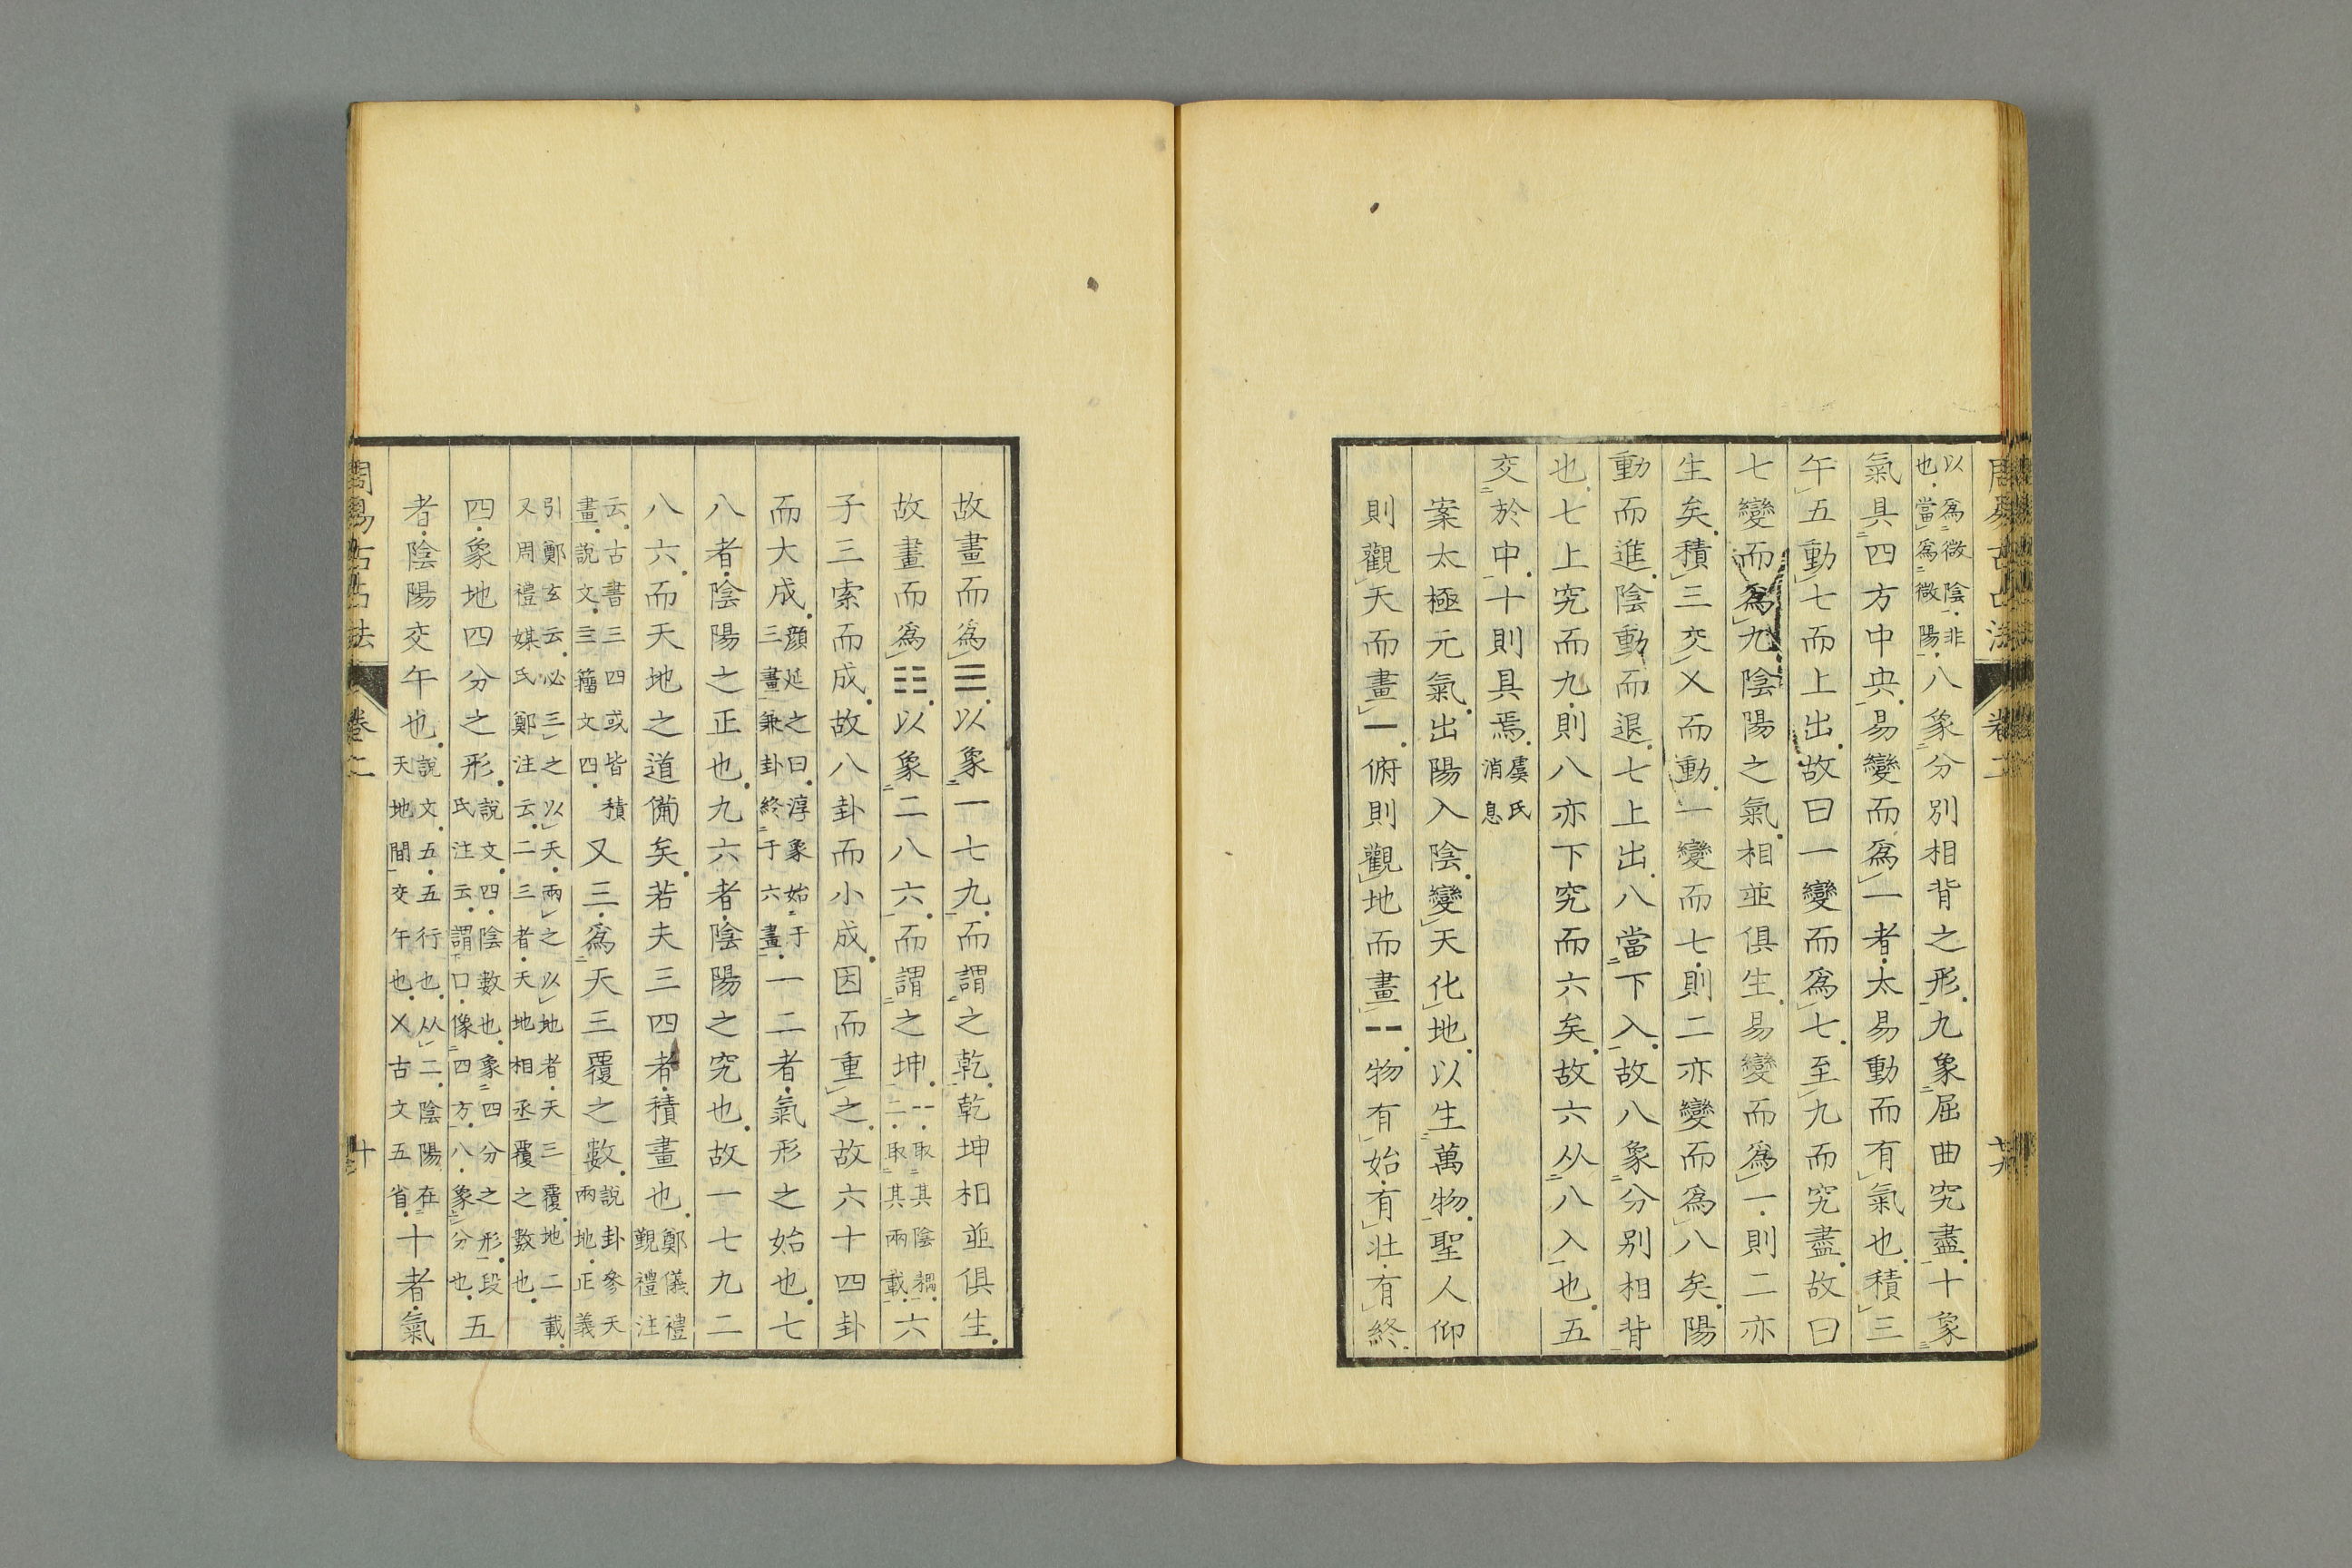 以爲微陰非
也當爲微陽八象分別相背之形九象屈曲究盡十象
氣具四方中央易變而爲一者太易動而有氣也積三
午五動七而上出故曰一變而爲七至九而究盡故曰
七變而爲九陰陽之氣相並俱生易變而爲一則二亦
生矣積三交㐅而動一變而七則二亦變而爲八矣陽
動而進陰動而退七上出八當下入故八象分别相背
也七上究而九則八亦下究而六矣故六从八入也五
交於中十則具焉虞氏
消息
案太極元氣出陽入陰變天化地以生萬物聖人仰
則觀天而畫⚊俯則觀地而畫⚋物有始有壯有終
故畫而爲☰以象一七九而謂之乾乾坤相並俱生
故畫而爲☷以象二八六而謂之坤⚋取其陰耦
二取其兩載六
子三索而成故八卦而小成因而重之故六十四卦
而大成顔延之曰淳象始于
三畫兼卦終于六畫一二者氣形之始也七
八者陰陽之正也九六者陰陽之究也故一七九二
八六而天地之道備矣若夫三四者積畫也鄭儀禮
覲禮注
云古書三四或皆積
畫說文亖籀文四又三爲天三覆之數說卦參天
兩地正義
引鄭玄云必三之以天兩之以地者天三覆地二載
又周禮媒氏鄭注云二三者天地相承覆之數也
四象地四分之形說文四陰數也象四分之形段
氏注云謂口像四方八象分也五
者陰陽交午也說文五五行也从二陰陽在
天地間交午也㐅古文五省十者氣
周易古占法 卷二 十